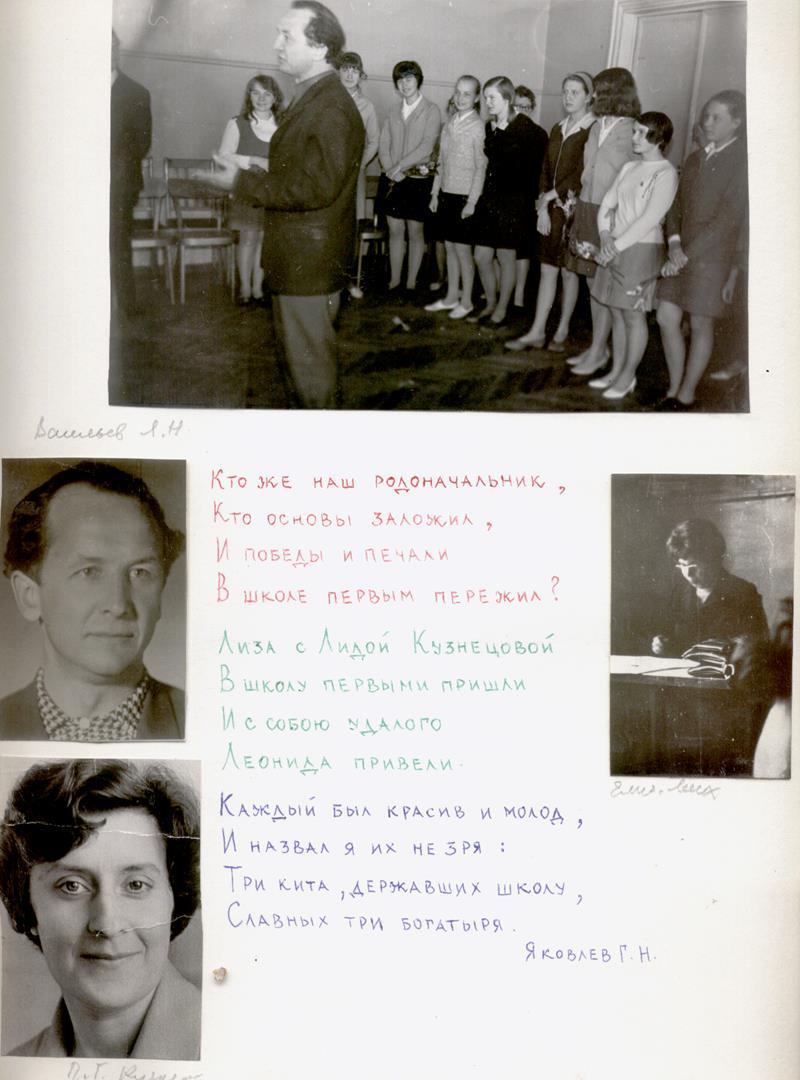 Васильев Л.Н
Кто же наш родоначальник,
Кто основы заложил,
И победы и печали
В школе первым пережил?
Лиза с Лидой Кузнецовой
В школу первыми пришли
И с собою удалого
Леонида привели.
Каждый был красив и молод,
И назвал я их не зря:
Три кита, державших школу,
Славных три богатыря.
Яковлев Г.Н.